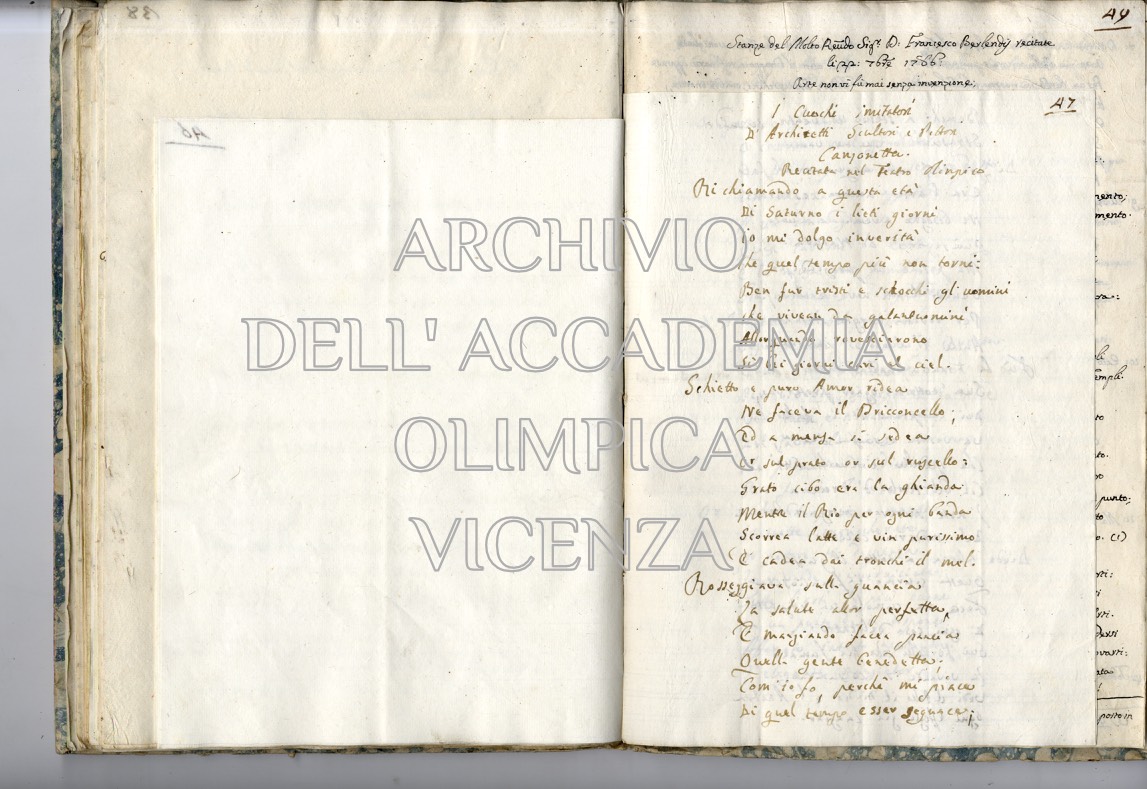 138
46
6.
49
Stanze del Molto Reu͠do Sigr. D: Francesco Berlendis recitate
li 22: 7bre 1766.
Arte non vi fù mai senza invenzione;
47
I Cuochi imitatori
D'Architetti Scultori e Pittori
Canzonetta.
Recitata nel Teatro Olimpico
Richiamando a questa età
Di Saturno i lieti giorni
io mi dolgo inverità
Che quel tempo più non torni:
Ben fur tristi e sciocchi gl'uomini
che vivean da galantuomini
Allorquando rovesciarono
Sì bei giorni cari al ciel.
Schietto e puro Amor ridea
Ne faceva il Bricconcello;
Ed a mensa si sedea
or sul prato or sul ruscello:
Grato cibo era la ghianda
Mentre il Rio per ogni banda
Scorrea latte e vin purissimo
E cadea dai tronchi il mel.
Rosseggiava sulla guancia
La salute allor perfetta,
E mangiando facea pancia
Quella gente benedetta;
Com'io fo, perchè mi piace
Di quel tempo esser seguace;
mento;
mento.
empli.
punto;
o. (1)
posto in
ARCHIVIO
DELL'ACCADEMIA
OLIMPICA
VICENZA